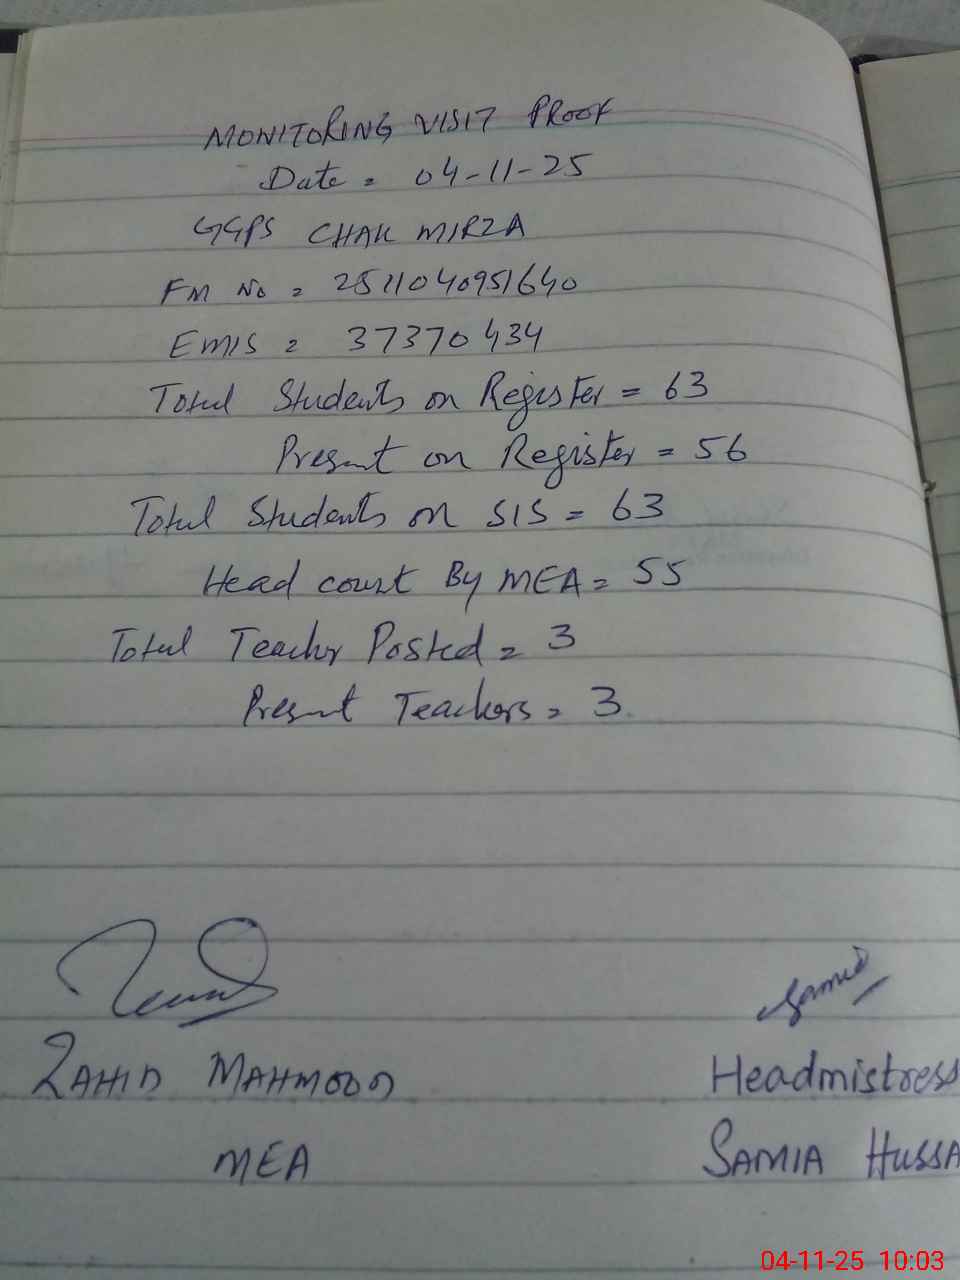 MONITORING VISIT PROOF
Date = 04-11-25
GGPS CHAK MIRZA
FM No = 2511040951640
EMIS = 37370434
Total Students on Register = 63
Present on Register = 56
Total Students on SIS = 63
Head count By MEA = 55
Total Teacher Posted = 3
Present Teachers = 3
Samia
ZAHID MAHMOOD
Headmistress
MEA
SAMIA HUSSA
04-11-25 10:03